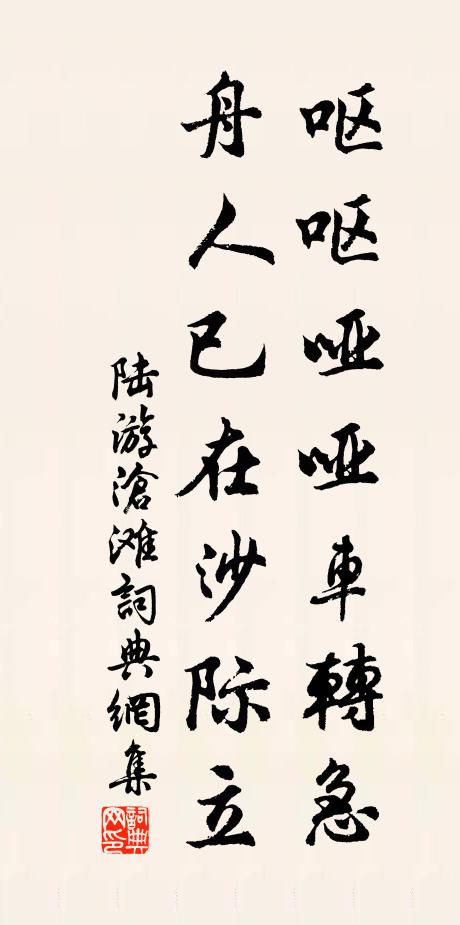 呕呕哑哑車轉急
舟人已在沙际立
陆游滄滩詞典網集
詞典